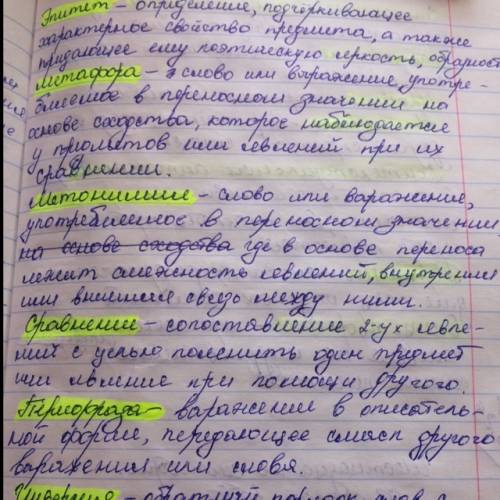 Эпитет – определение, подчёркивающее
характерное свойство предмета, а также
придающее ему поэтическую яркость, образность
Метафора – слово или выражение, употре-
бленное в переносном значении на
основе сходства, которое наблюдается
у предметов или явлений при их
сравнении.
Метонимия – слово или выражение,
употребляемое в переносном значении
на основе сходства где в основе переноса
лежит смежность явлений, внутренняя
или внешняя связь между ними.
Сравнение – сопоставление 2-ух явле-
ний с целью пояснить один предмет
или явление при помощи другого.
Перифраза – выражение в описатель-
ной форме, передающее смысл другого
выражения или слова.
Инверсия – обратный порядок слов